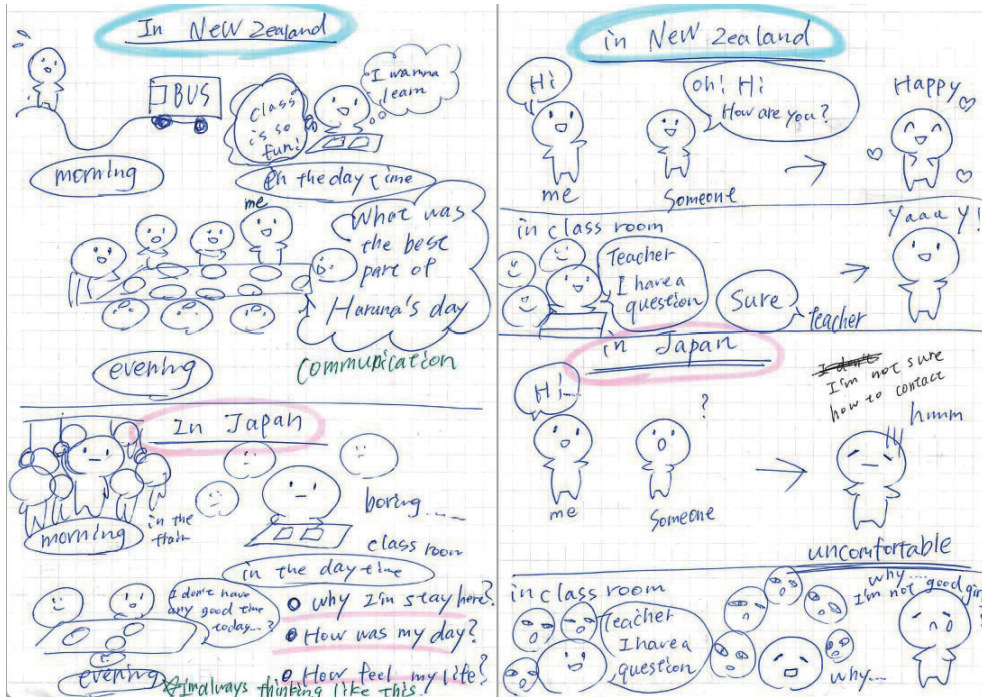 In New Zealand
BUS
class
is so
fun!
I wanna
learn
morning
in the day time
me
What was
the best
part of
Haruna's day
evening
communication
In Japan
morning
in the
train
boring.....
class room
in the day time
I don't have
any good time
today...?
evening
why I'm stay here?
How was my day?
How feel my life?
☆I'm always thinking like this!
in New Zealand
Hi
oh! Hi
How are you?
Happy
me
Someone
in class room
Teacher
I have a
question
Sure
teacher
Yaaay!
in Japan
Hi....
?
me
Someone
I don't
I'm not sure
how to contact
humm
uncomfortable
in class room
Teacher
I have a
question
why...
I'm not good girl?
why...